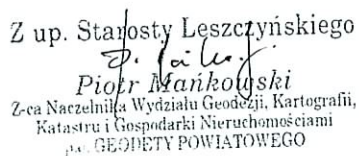 Z up. Starosty Leszczyńskiego
Piotr Mańkowski
Z-ca Naczelnika Wydziału Geodezji, Kartografii,
Katastru i Gospodarki Nieruchomościami
p.o. GEODETY POWIATOWEGO